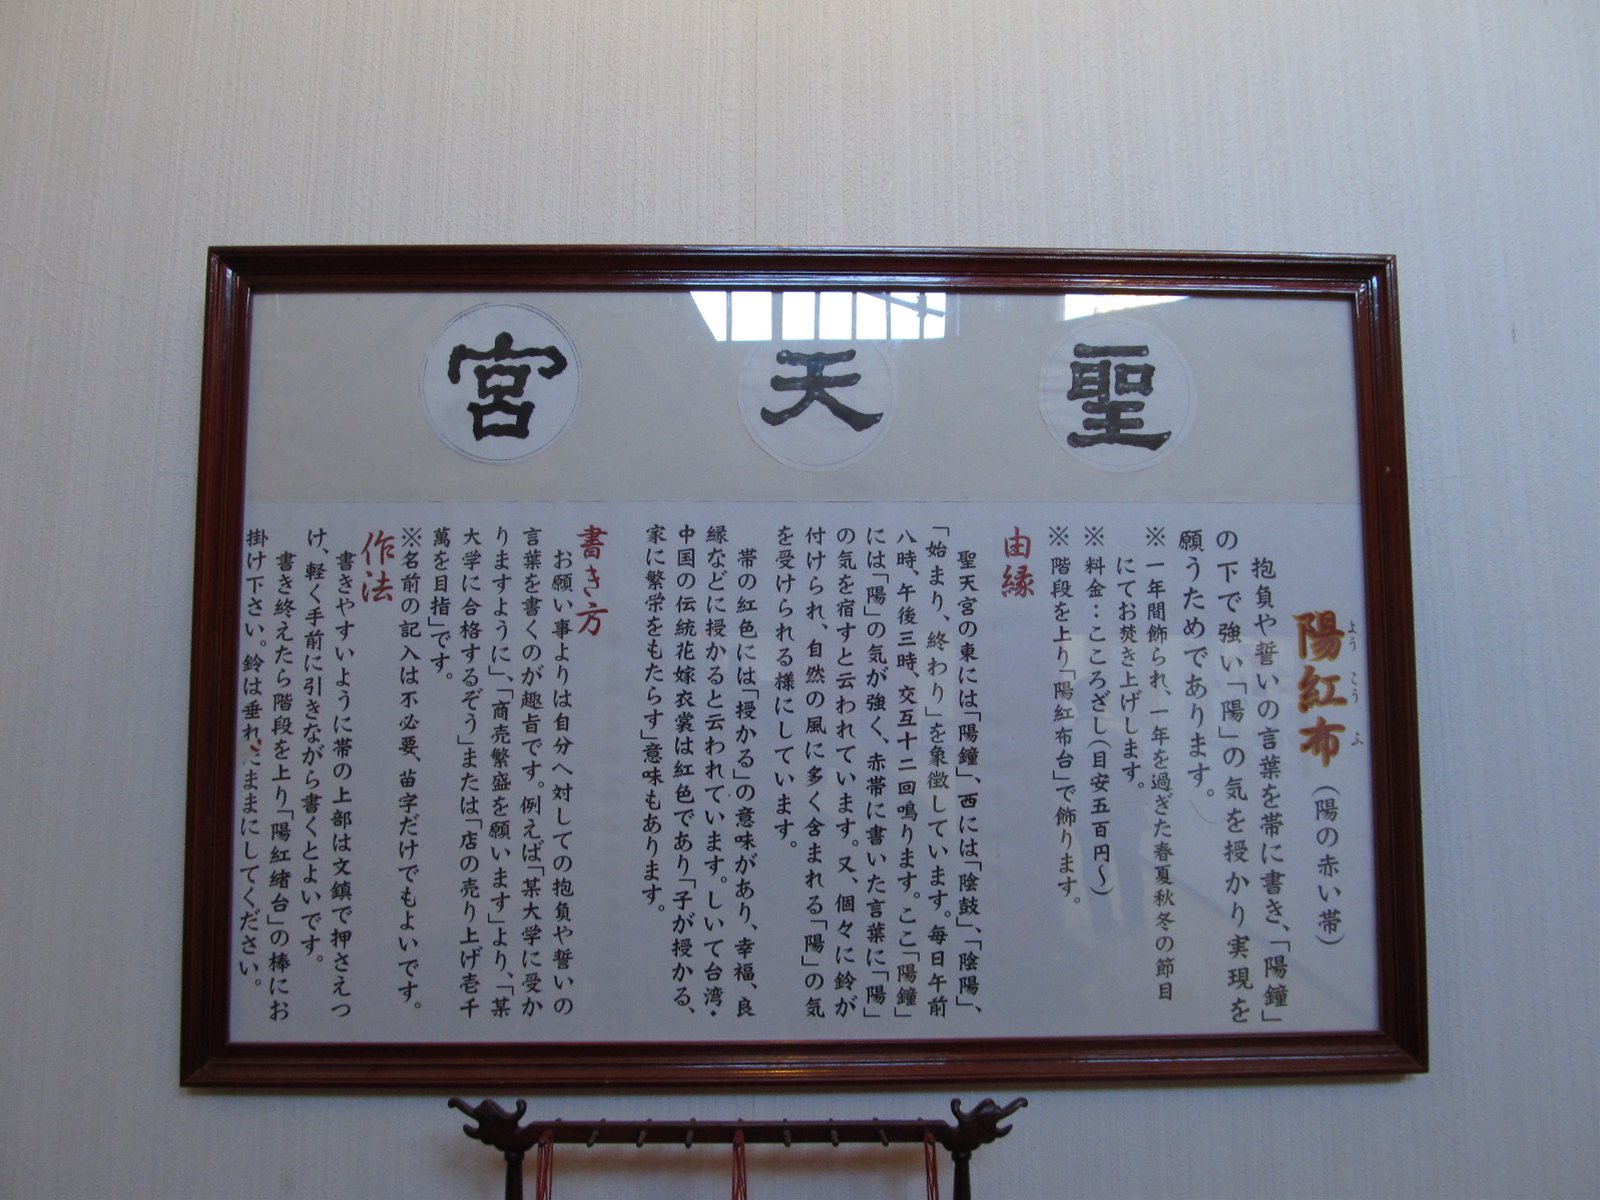 聖天宮
陽紅布（陽の赤い帯）
ようこうふ
抱負や誓いの言葉を帯に書き、「陽鐘」
の下で強い「陽」の気を授かり実現を
願うためであります。
※一年間飾られ、一年を過ぎた春夏秋冬の節目
にてお焚き上げします。
※料金：こころざし（目安五百円〜）
※階段を上り「陽紅布台」で飾ります。
由縁
聖天宮の東には「陽鐘」、西には「陰鼓」、「陰陽」、
「始まり、終わり」を象徴しています。毎日午前
八時、午後三時、交互十二回鳴ります。ここ「陽鐘」
には「陽」の気が強く、赤帯に書いた言葉に「陽」
の気を宿すと云われています。又、個々に鈴が
付けられ、自然の風に多く含まれる「陽」の気
を受けられる様にしています。
帯の紅色には「授かる」の意味があり、幸福、良
縁などに授かると云われています。しいて台湾・
中国の伝統花嫁衣裳は紅色であり「子が授かる、
家に繁栄をもたらす」意味もあります。
書き方
お願い事よりは自分へ対しての抱負や誓いの
言葉を書くのが趣旨です。例えば「某大学に受か
りますように」、「商売繁盛を願います」より、「某
大学に合格するぞう」または「店の売り上げ壱千
萬を目指」です。
※名前の記入は不必要、苗字だけでもよいです。
作法
書きやすいように帯の上部は文鎮で押さえつ
け、軽く手前に引きながら書くとよいです。
書き終えたら階段を上り「陽紅緒台」の棒にお
掛け下さい。鈴は垂れたままにしてください。